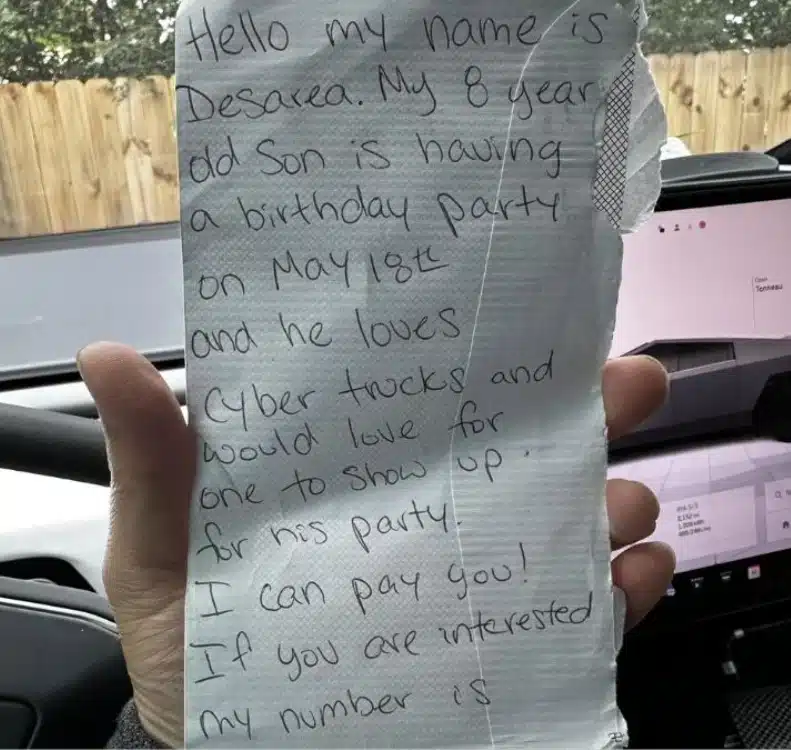 Hello my name is
Desarea. My 8 year
old Son is having
a birthday party
on May 18th
and he loves
Cyber trucks and
would love for
one to show up
for his party.
I can pay you!
If you are interested
my number is
Open
Tonneau